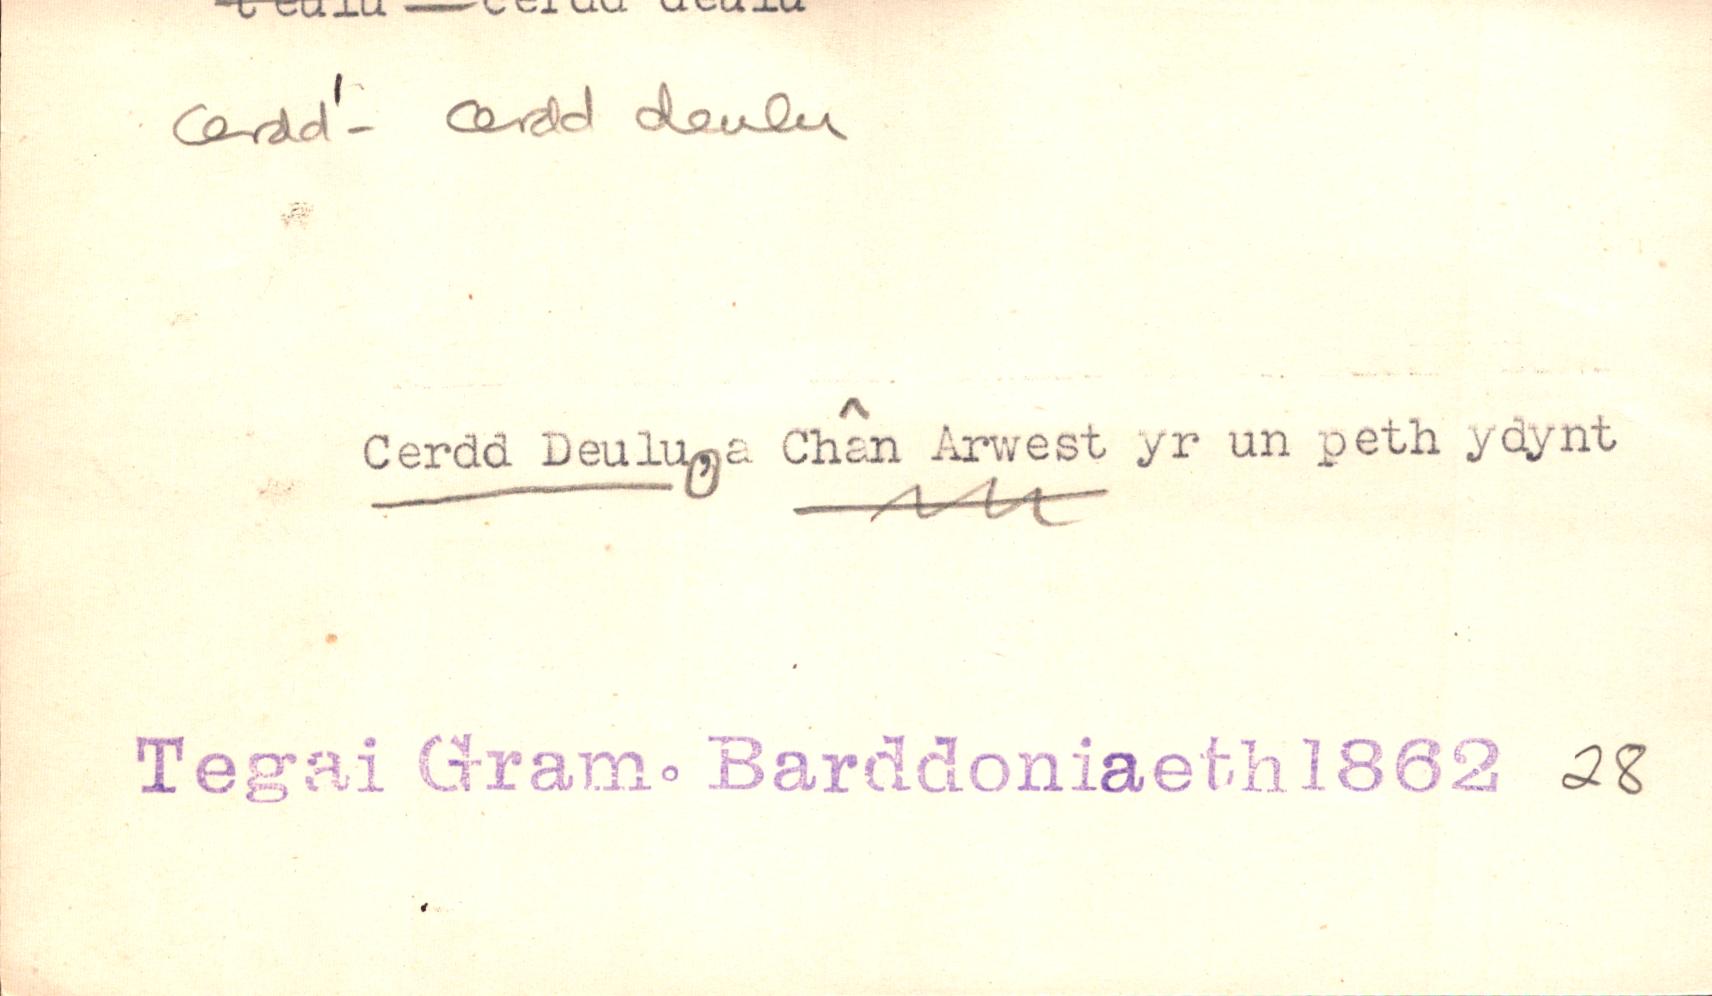 teulu — cerdd deulu
cerdd¹- cerdd deulu
Cerdd Deulu, a Chân Arwest yr un peth ydynt
Tegai Gram. Barddoniaeth 1862 28